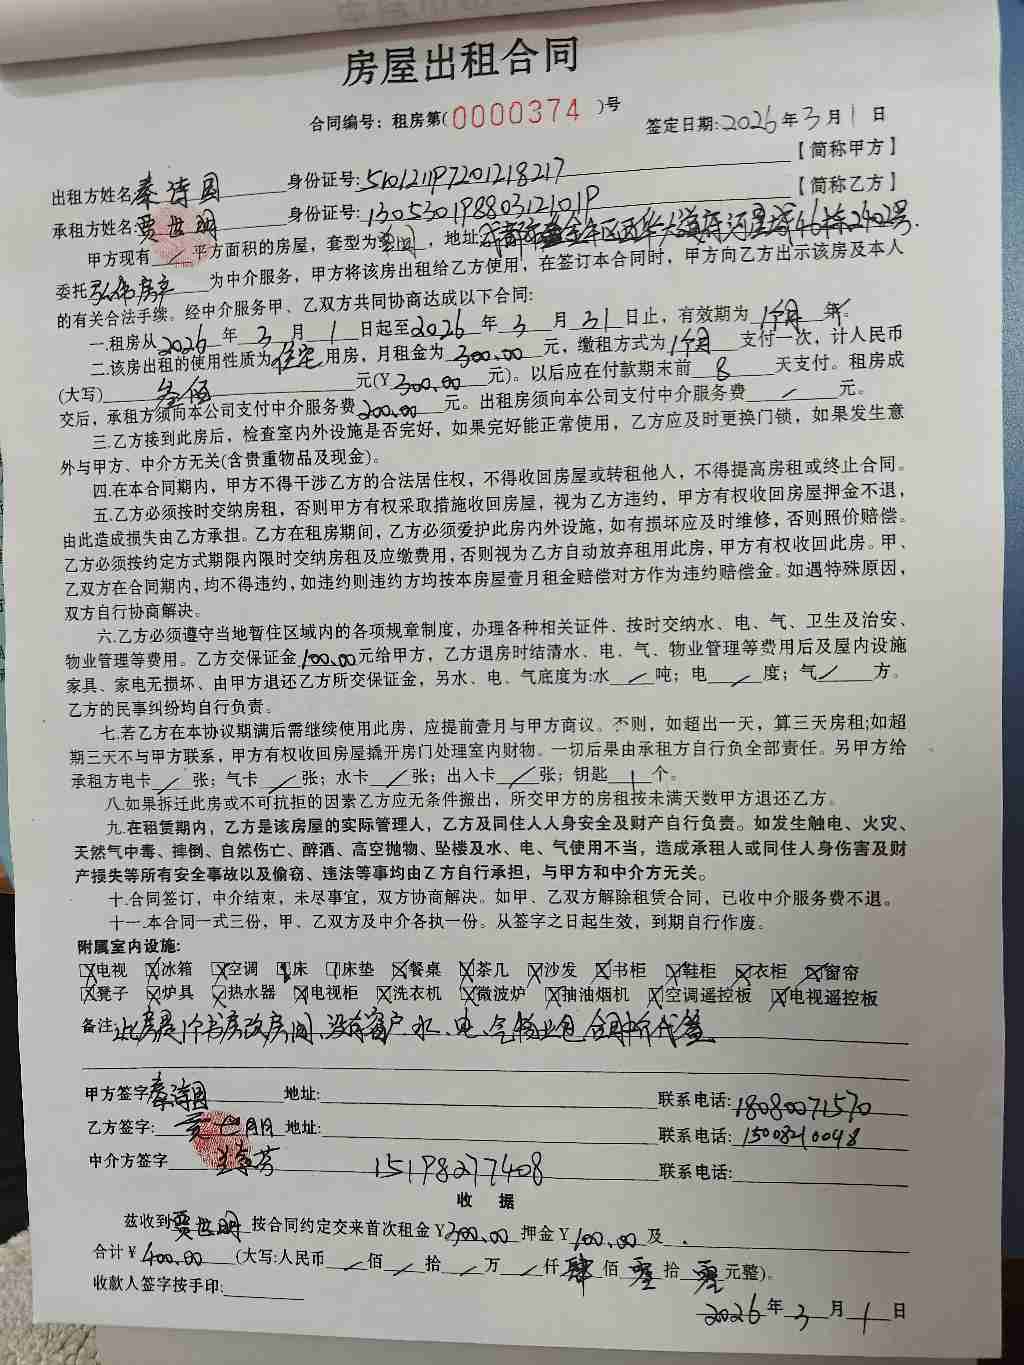 房屋出租合同
合同编号：租房第(0000374)号
签定日期:2026年3月1日
出租方姓名秦诗国 身份证号:510121197201218217【简称甲方】
承租方姓名贾世明 身份证号:130530198803121019【简称乙方】
甲方现有/平方面积的房屋，套型为单间，地址:成都市金牛区西华大道府河星城46栋2402号.
委托弘伟房产为中介服务，甲方将该房出租给乙方使用，在签订本合同时，甲方向乙方出示该房及本人
的有关合法手续。经中介服务甲、乙双方共同协商达成以下合同:
一.租房从2026年3月1日起至2026年3月31日止，有效期为1个月年。
二.该房出租的使用性质为住宅用房，月租金为300.00元，缴租方式为1个月支付一次，计人民币
(大写)叁佰元(Y300.00元)。以后应在付款期末前8天支付。租房成
交后，承租方须向本公司支付中介服务费200.00元。出租房须向本公司支付中介服务费/元。
三.乙方接到此房后，检查室内外设施是否完好，如果完好能正常使用，乙方应及时更换门锁，如果发生意
外与甲方、中介方无关(含贵重物品及现金)。
四.在本合同期内，甲方不得干涉乙方的合法居住权，不得收回房屋或转租他人，不得提高房租或终止合同。
五.乙方必须按时交纳房租，否则甲方有权采取措施收回房屋，视为乙方违约，甲方有权收回房屋押金不退，
由此造成损失由乙方承担。乙方在租房期间，乙方必须爱护此房内外设施，如有损坏应及时维修，否则照价赔偿。
乙方必须按约定方式期限内限时交纳房租及应缴费用，否则视为乙方自动放弃租用此房，甲方有权收回此房。甲、
乙双方在合同期内，均不得违约，如违约则违约方均按本房屋壹月租金赔偿对方作为违约赔偿金。如遇特殊原因，
双方自行协商解决。
六.乙方必须遵守当地暂住区域内的各项规章制度，办理各种相关证件、按时交纳水、电、气、卫生及治安、
物业管理等费用。乙方交保证金100.00元给甲方，乙方退房时结清水、电、气、物业管理等费用后及屋内设施
家具、家电无损坏、由甲方退还乙方所交保证金，另水、电、气底度为:水/吨；电/度；气/方。
乙方的民事纠纷均自行负责。
七.若乙方在本协议期满后需继续使用此房，应提前壹月与甲方商议。否则，如超出一天，算三天房租;如超
期三天不与甲方联系，甲方有权收回房屋撬开房门处理室内财物。一切后果由承租方自行负全部责任。另甲方给
承租方电卡/张；气卡/张；水卡/张；出入卡/张；钥匙1个。
八.如果拆迁此房或不可抗拒的因素乙方应无条件搬出，所交甲方的房租按未满天数甲方退还乙方。
九.在租赁期内，乙方是该房屋的实际管理人，乙方及同住人人身安全及财产自行负责。如发生触电、火灾、
天然气中毒、摔倒、自然伤亡、醉酒、高空抛物、坠楼及水、电、气使用不当，造成承租人或同住人身伤害及财
产损失等所有安全事故以及偷窃、违法等事均由乙方自行承担，与甲方和中介方无关。
十.合同签订，中介结束，未尽事宜，双方协商解决。如甲、乙双方解除租赁合同，已收中介服务费不退。
十一.本合同一式三份，甲、乙双方及中介各执一份。从签字之日起生效，到期自行作废。
附属室内设施:
电视 冰箱 空调 床 床垫 餐桌 茶几 沙发 书柜 鞋柜 衣柜 窗帘
凳子 炉具 热水器 电视柜 洗衣机 微波炉 抽油烟机 空调遥控板 电视遥控板
备注:此房是1个书房改房间、没有窗户水、电、气物业包 合同中介代签
甲方签字秦诗国 地址: 联系电话:18080071570
乙方签字:贾世明 地址: 联系电话:15008210048
中介方签字 15198277408 联系电话:
收据
兹收到贾世明按合同约定交来首次租金￥300.00押金￥100.00及.
合计￥400.00(大写:人民币/佰/拾/万/仟肆佰零拾零元整)。
收款人签字按手印:
2026年3月1日